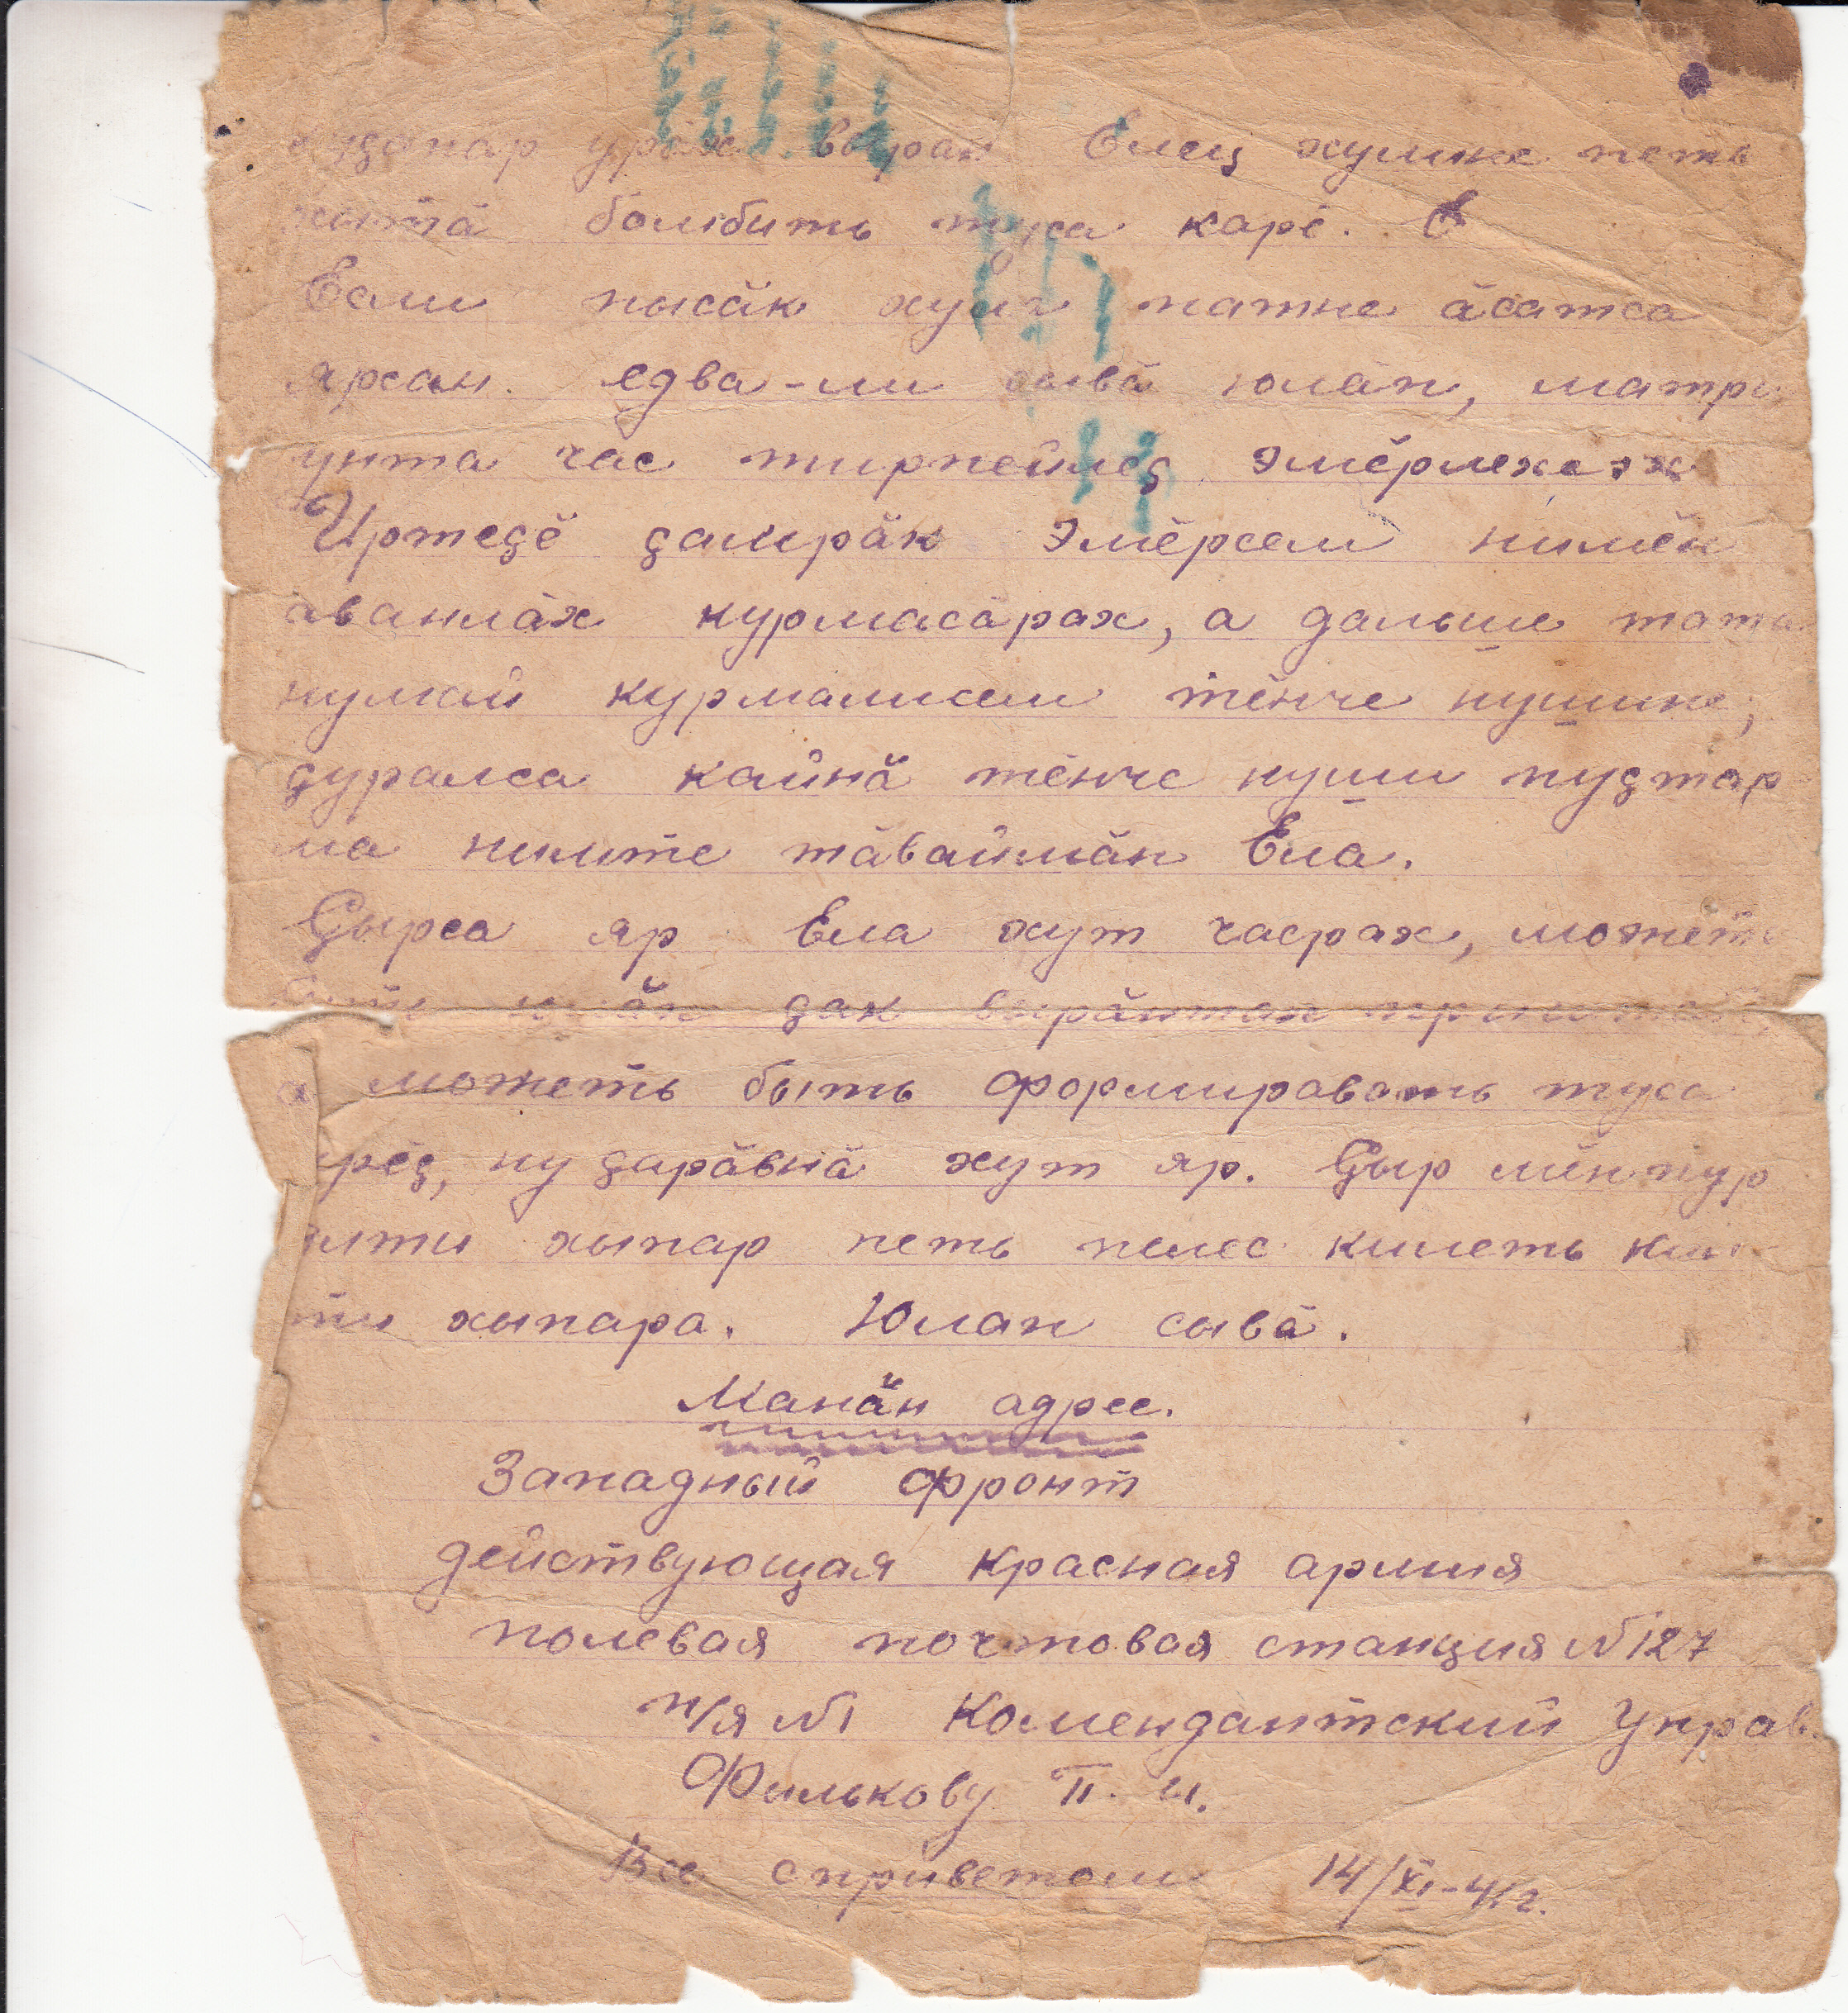 кудапар урӑх вырӑн Елец хулине петь
хытӑ бомбить туса карӗ.
Если пысӑк хули патне ӑсатса
ярсан. едва-ли сывӑ юлӑп, матри
унта час тирпейлеҫ эмӗрлехех
Иртедҫӗ ҫамрӑк ӗмӗрсем нимӗн
аванлӑх курмасӑрах, а дальше тата
нумай курмалисем тӗнче ҫушше,
ҫуралса кайнӑ тӗнче куҫли пуҫтар
ма нимте тӑваймӑн Ела.
Ҫырса яр Ела хут часрах, может
быть юлӑп ҫак вырӑнтах
а можеть быть формировать туса
ярӗҫ, ну ҫапӑвнӑ хут яр. Ҫыр мӗн пур
ялти хыпар петь пелес килеть кил
ти хыпара. Юлап сывӑ.
Манӑн адрес.
Западный фронт
действующая красная армия
полевая почтовая станция №127
п/я №1 Комендантский Управ.
Филькову П. И.
Все с приветом 14/XI-41г.